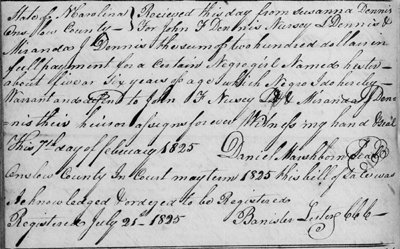 State of N Carolina } Recieved this day from Susanna Dennis
Onslow County } For John F Dennis Nersey D Dennis &
Miranda J Dennis the sum of two hundred dollars in
full payment for a Certain Negro girl Named hester
about five or Six years of age which Negro I do hereby
Warrant and defend to John F Nersey D & Miranda J Den
nis their heirs or assigns forever Witness my hand & seal
This 7th day of february 1825 Daniel Mashborn Seal
Onslow County In Court may term 1825 this bill of Sale was
Acknowledged & ordered to be Registered
Registered July 21st 1825 Banister Lester CCC